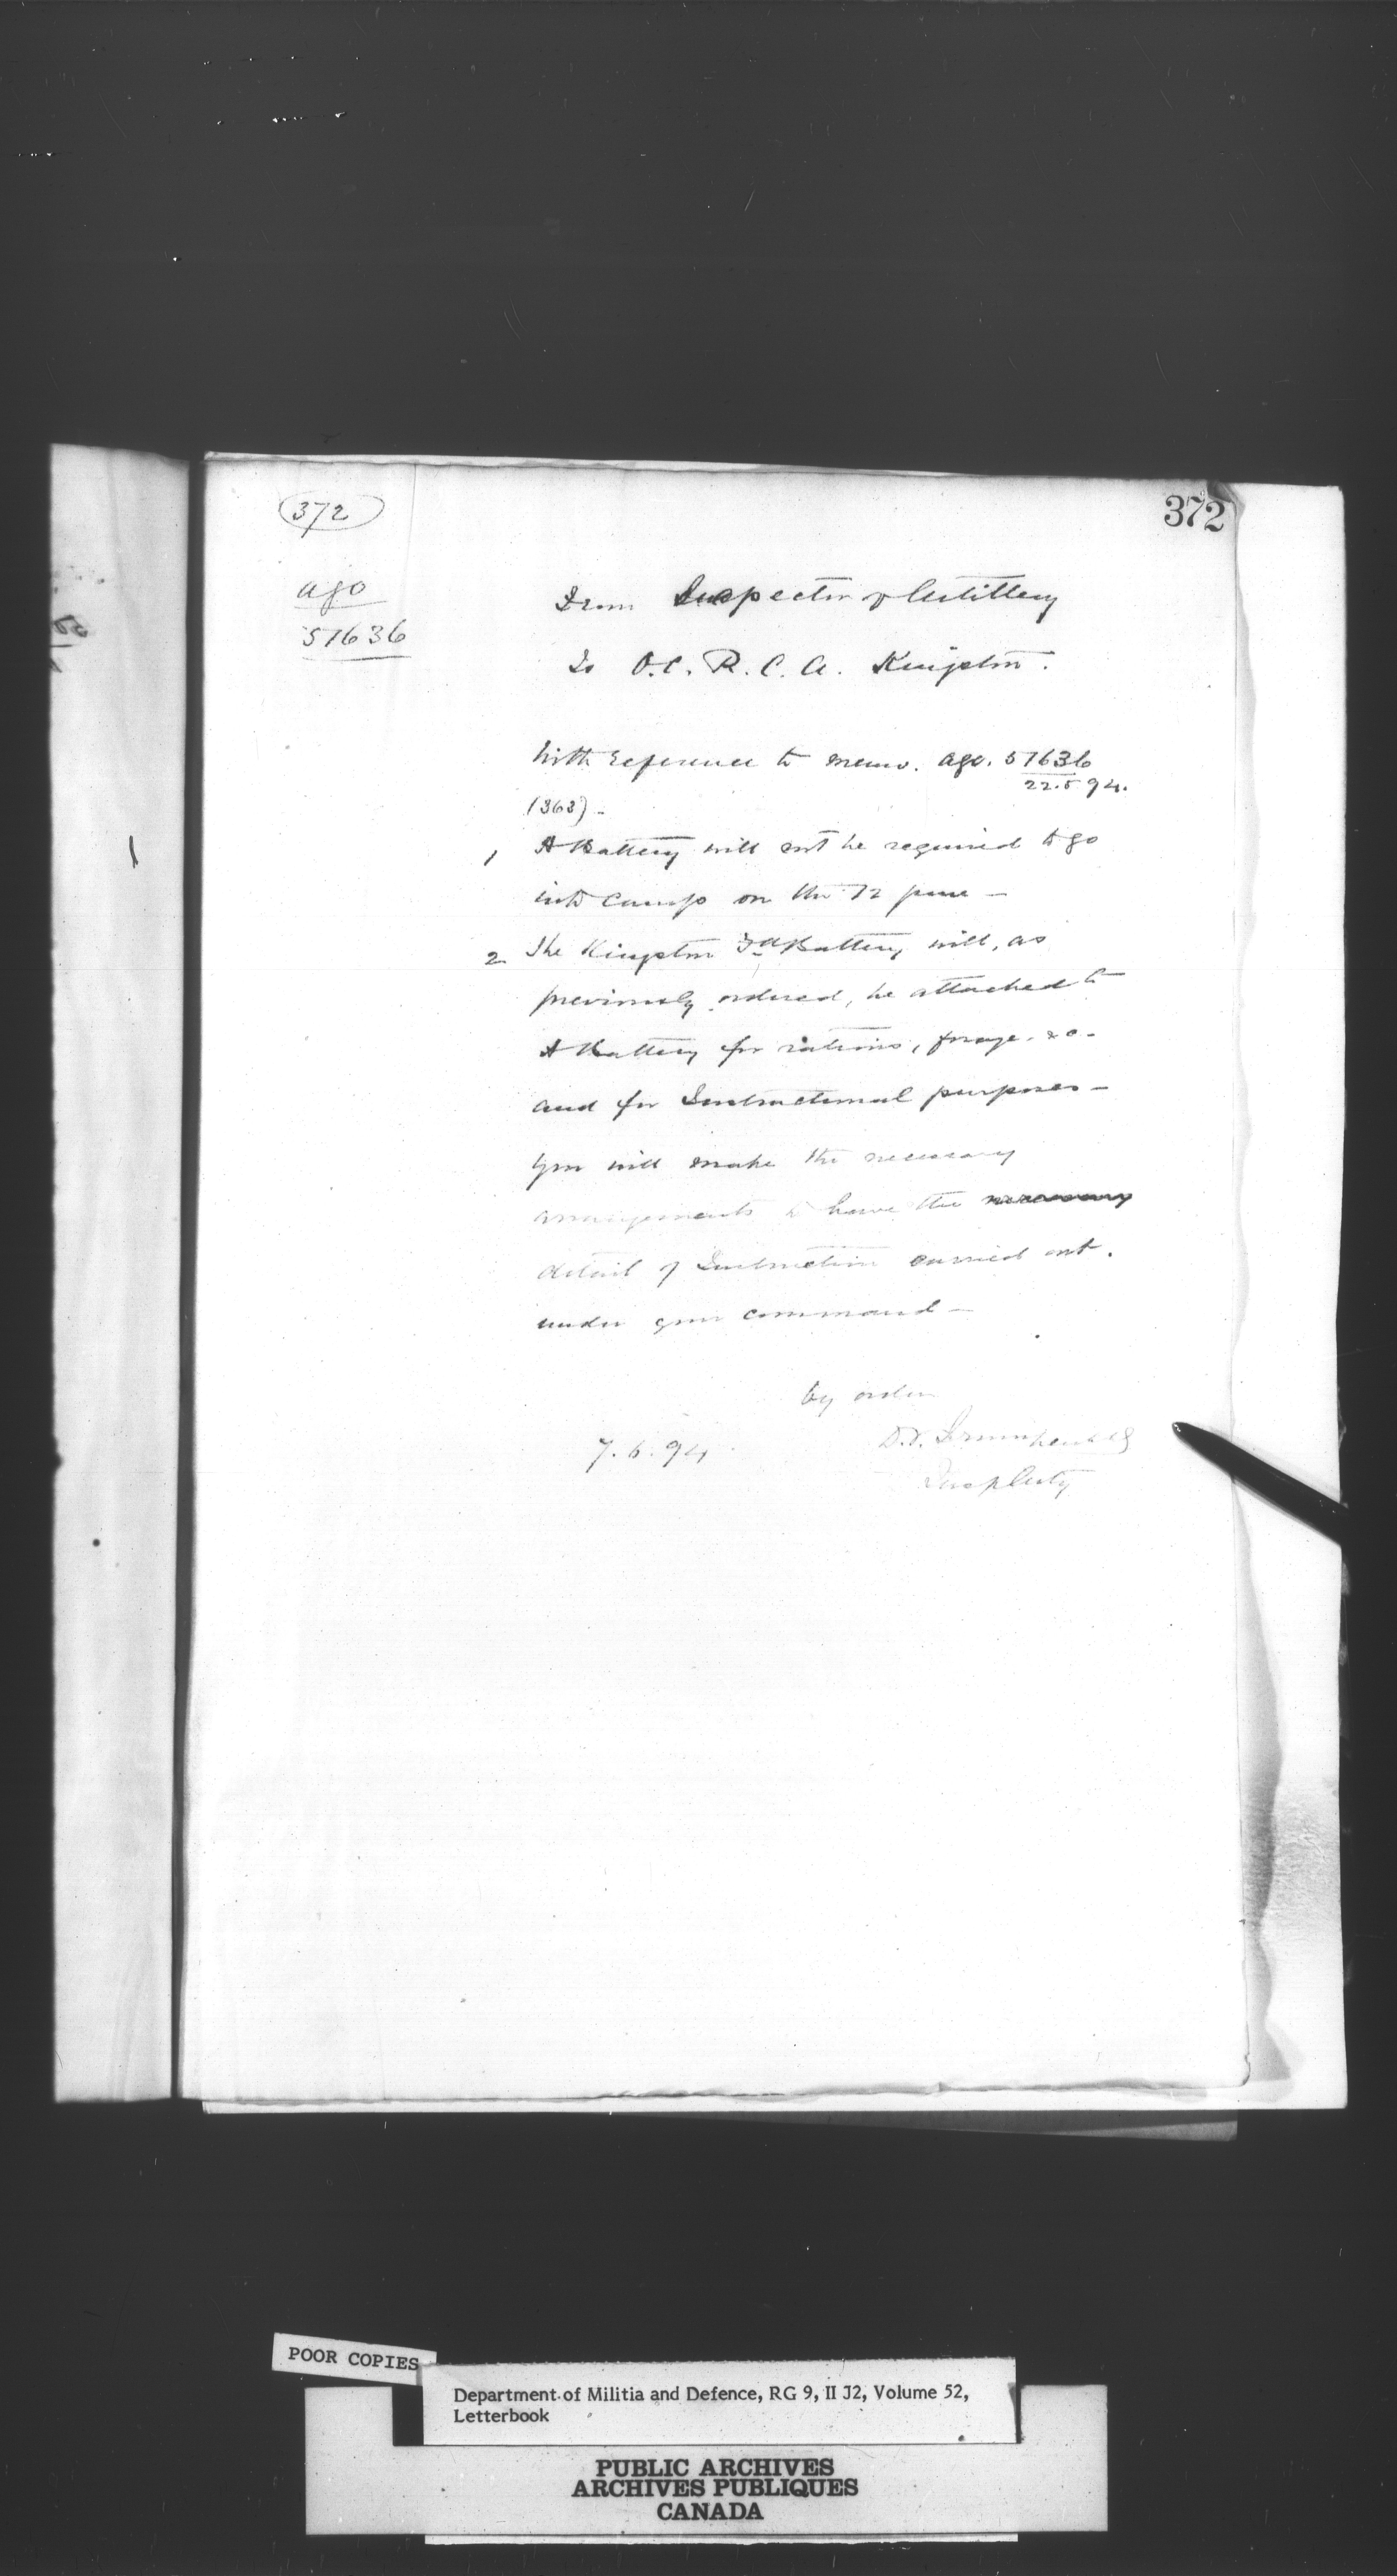 372
372
ago
57636
From Inspector of Artillery
To O.C. R. C. A. Kingston.
With reference to memo. ago. 57636
22.5 94.
(363) -
1 A Battery will not be required to go
into camp on the 12 June -
2 The Kingston Fd Battery will, as
previously ordered, be attached to
A Battery for rations, forage. &c -
and for Instructional purposes -
You will make the necessary
arrangements to have the necessary
detail of Instruction carried out.
under your command -
by order
7.6.94
D.T. Irwin
POOR COPIES
Department of Militia and Defence, RG 9, II J2, Volume 52,
Letterbook
PUBLIC ARCHIVES
ARCHIVES PUBLIQUES
CANADA